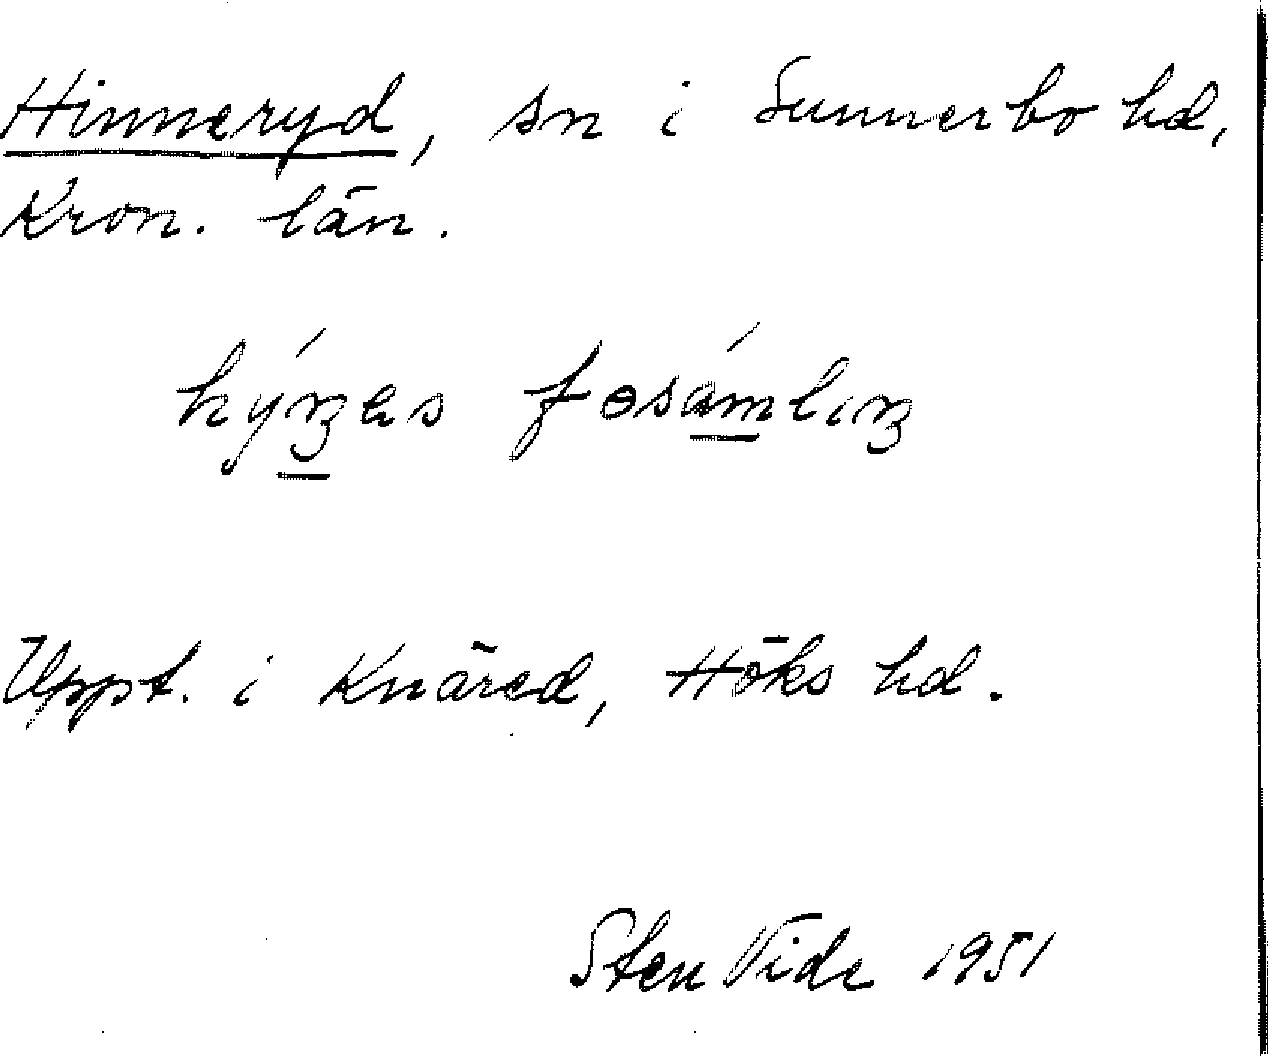 Hinneryd, sn i Sunnerbo hd,
Kron. län.
Uppt. i Knäred, Höks hd.
Sten Vide 1951